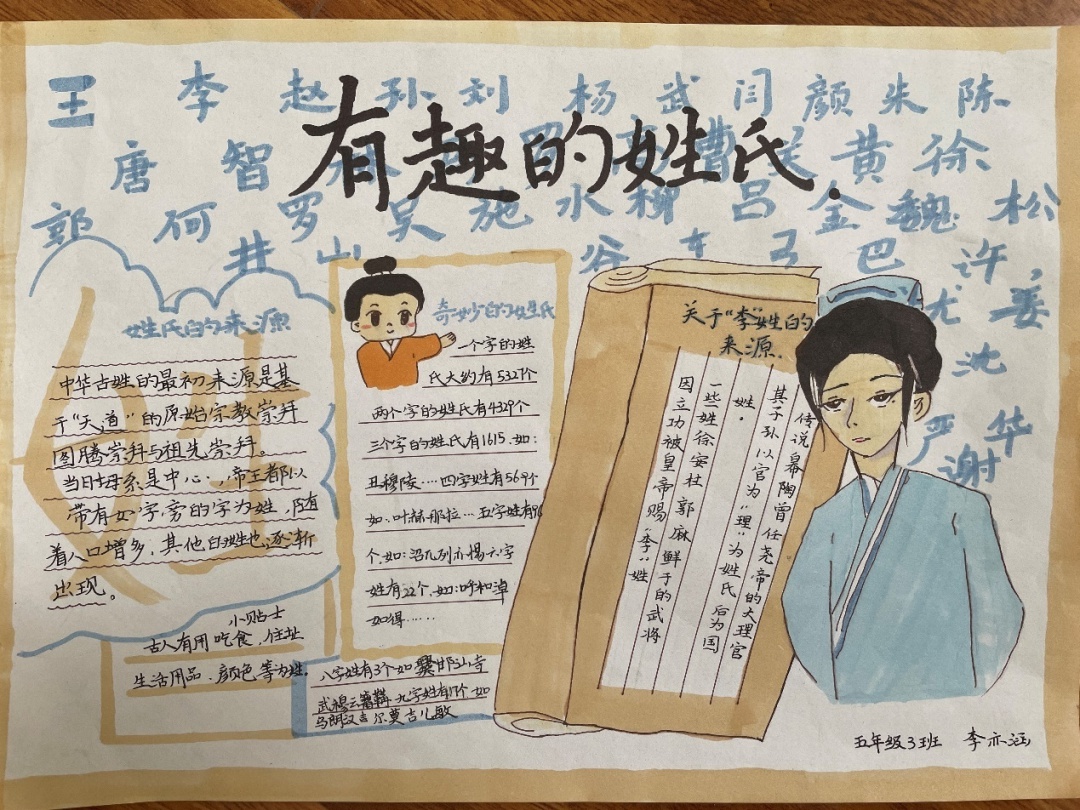 王 李 赵 孙 刘 杨 武 闫 颜 朱 陈
有趣的姓氏.
唐 智 黄 徐
郭 何 罗 吴 施 水 柳 吕 金 魏 松
井 山 谷 车 弓 巴 许
尤 姜
沈
严 华
谢
姓氏的来源
中华古姓的最初来源是基
于“天道”的原始宗教崇拜
图腾崇拜与祖先崇拜。
当日母系是中心,帝王都以
带有女字旁的字为姓,随有
着人口增多,其他的姓也逐渐
出现。
小贴士
古人有用吃食、住址
生活用品、颜色、等为姓.
奇妙的的姓氏
一个字的姓
氏大约有5327个
两个字的姓氏有4329个
三个字的姓氏有1615.如:
丑穆陵……四字姓有569个
如:叶赫那拉…五字姓有96
个.如: 六字
姓有22个.如:呼和淖
如得……
八字姓有3个如 邯山寺
武穆云 九字姓有1个 如
乌朗汉吉尔莫吉儿敏
关于“李”姓的
来源.
传说皋陶曾任尧帝的大理官
其子孙以官为“理”为姓氏后为国
姓。
一些姓徐安杜郭麻鲜于的武将
因立功被皇帝赐“李”姓
五年级3班 李亦涵